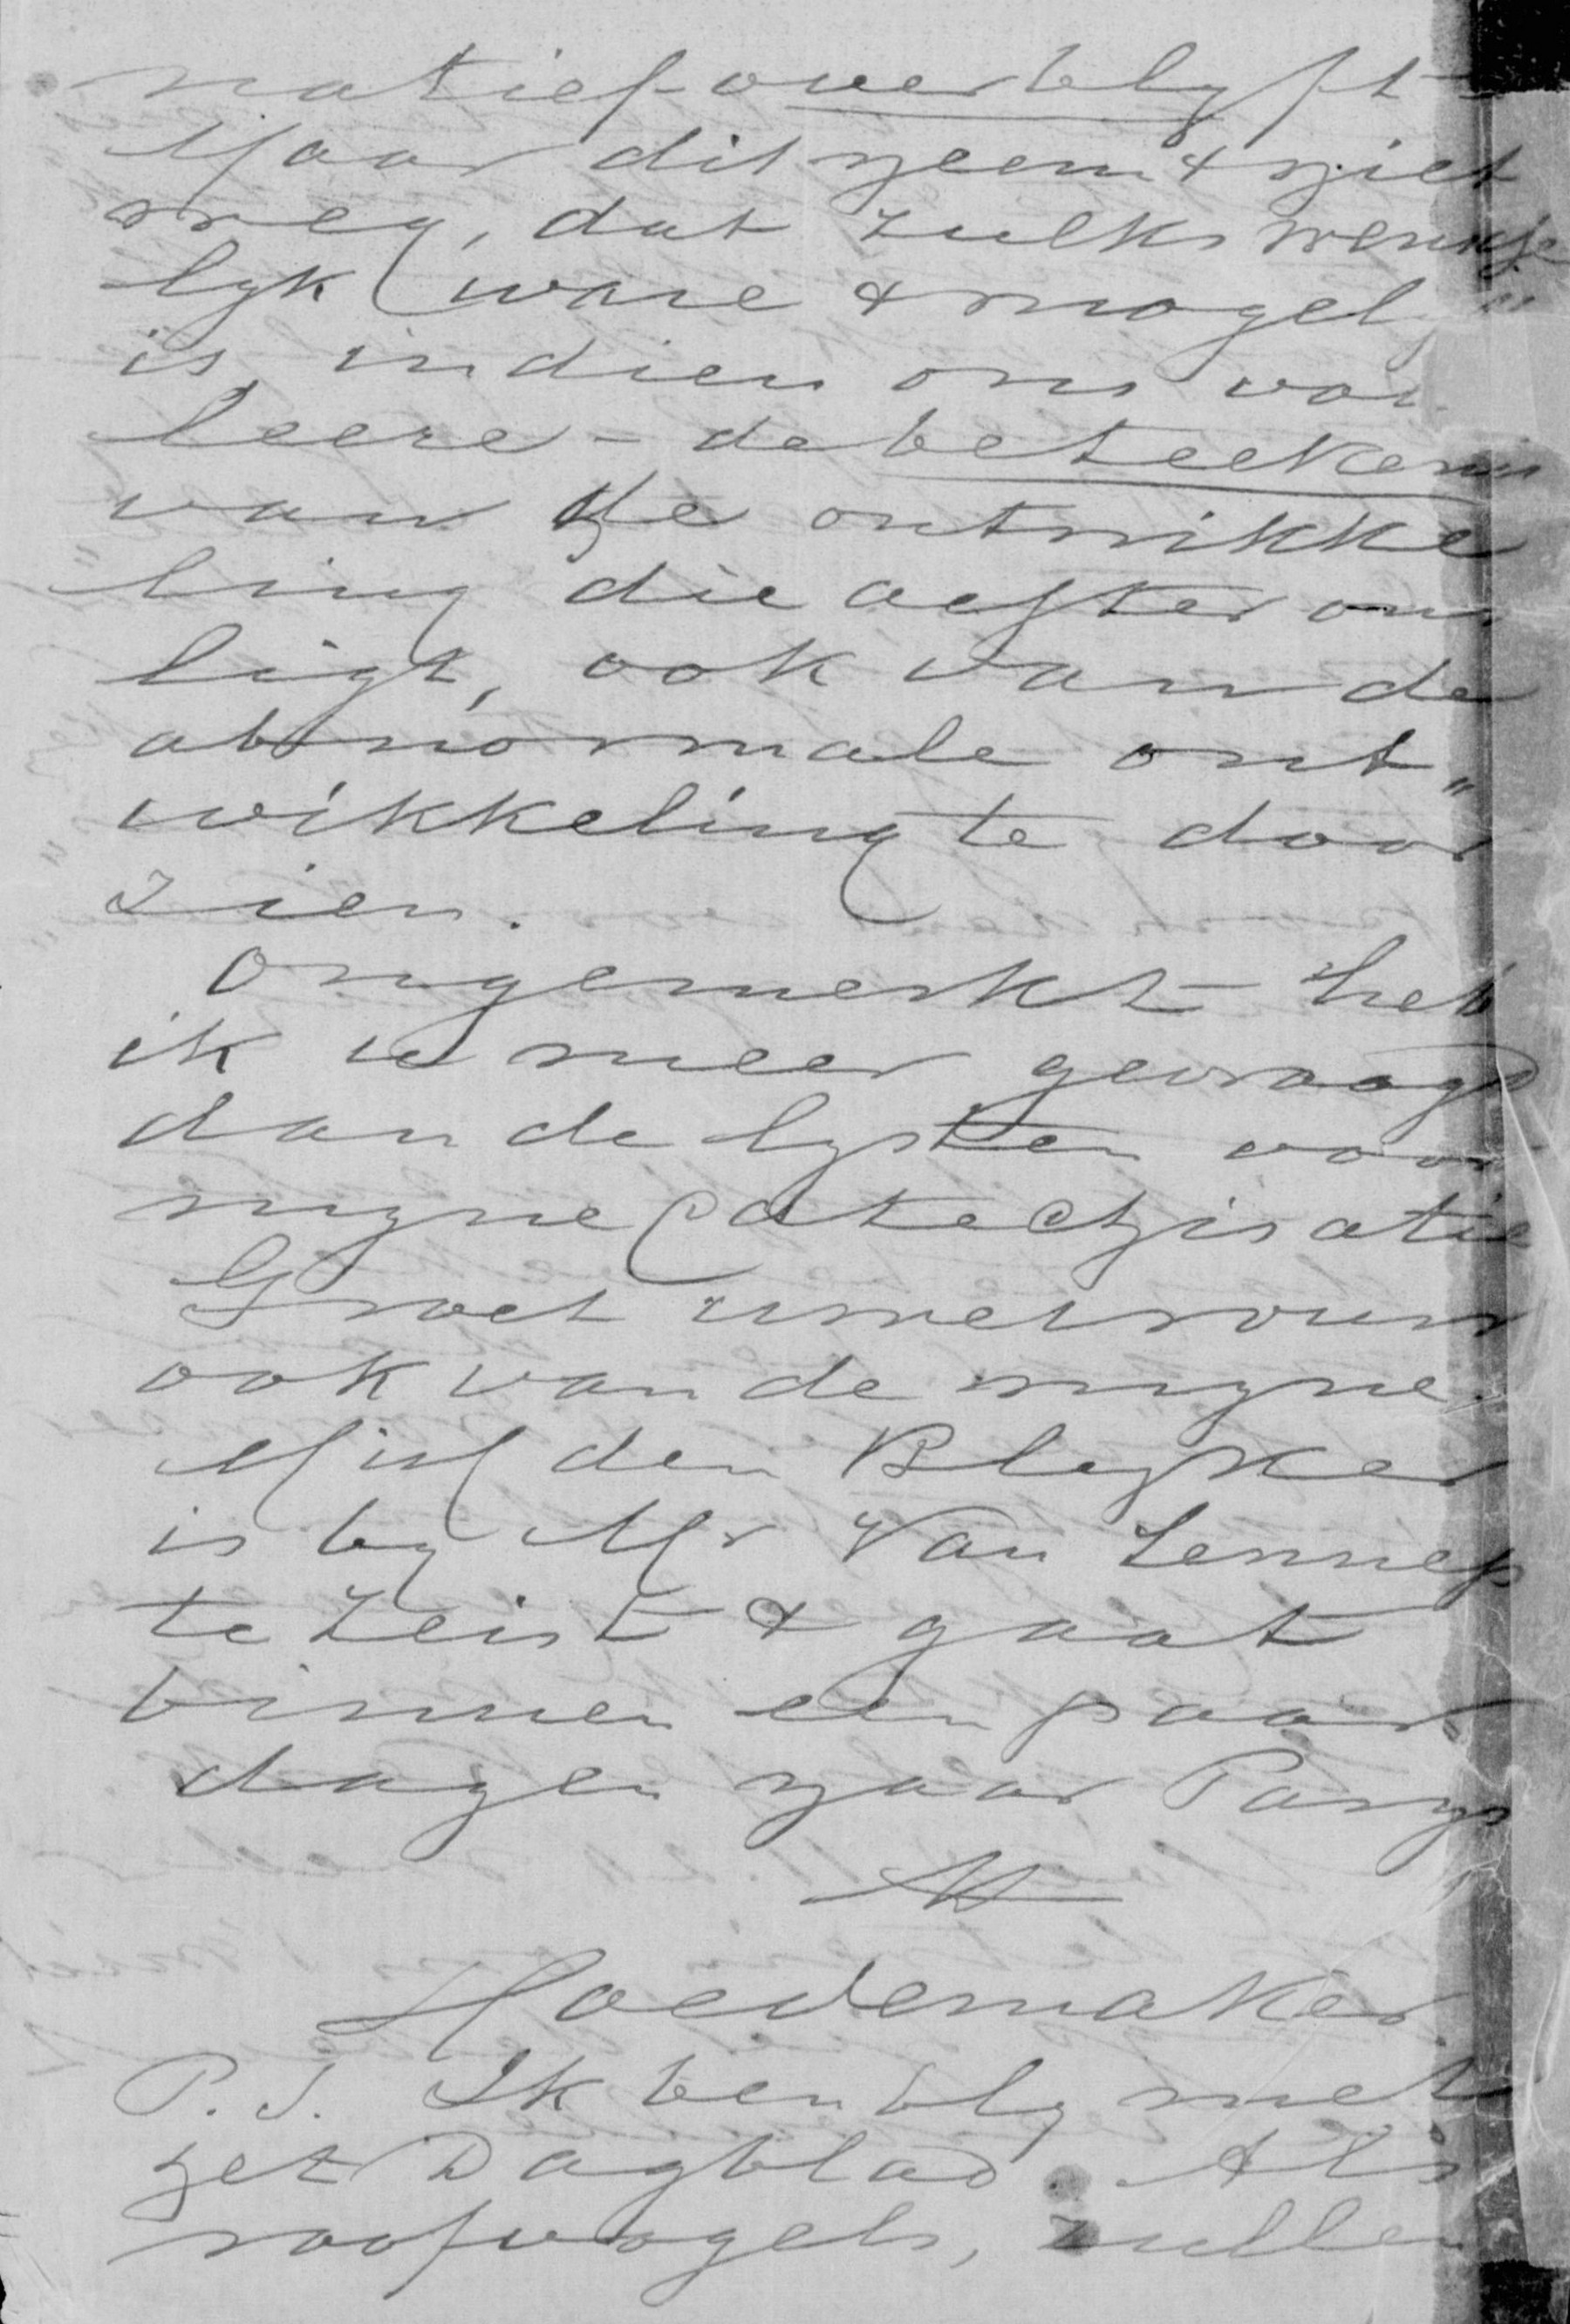 natief overblyft -
Maar dit neemt niet
weg, dat zulks wensche
lyk ware & mogel
is, indien ons vol
leere - de beteekenis
van de ontwikke
ling die achter ons
ligt, ook van de
abnormale ont„
wikkeling te door
zien.
Ongemerkt heb
ik u meer gevraagd
dan de lysten voor
myne Catechisatie
Groet uwe vrouw
ook van de myne.
den Blyker
is by Mr Van Lennep
te Zeist & gaat
binnen een paar
dagen naar Parys
tt
Hoedemaker
P.S. Ik ben bly met
het Dagblad. Als
roofvogels, zullen